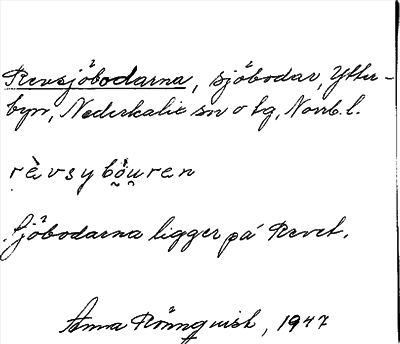 Revsjöbodarna, sjöbodar, Ytter-
byn, Nederkalix sn o tg, Norrb. l.
rèvsybǫ̀u̯ren
Sjöbodarna ligger på Revet.
Anna Rönnquist, 1947